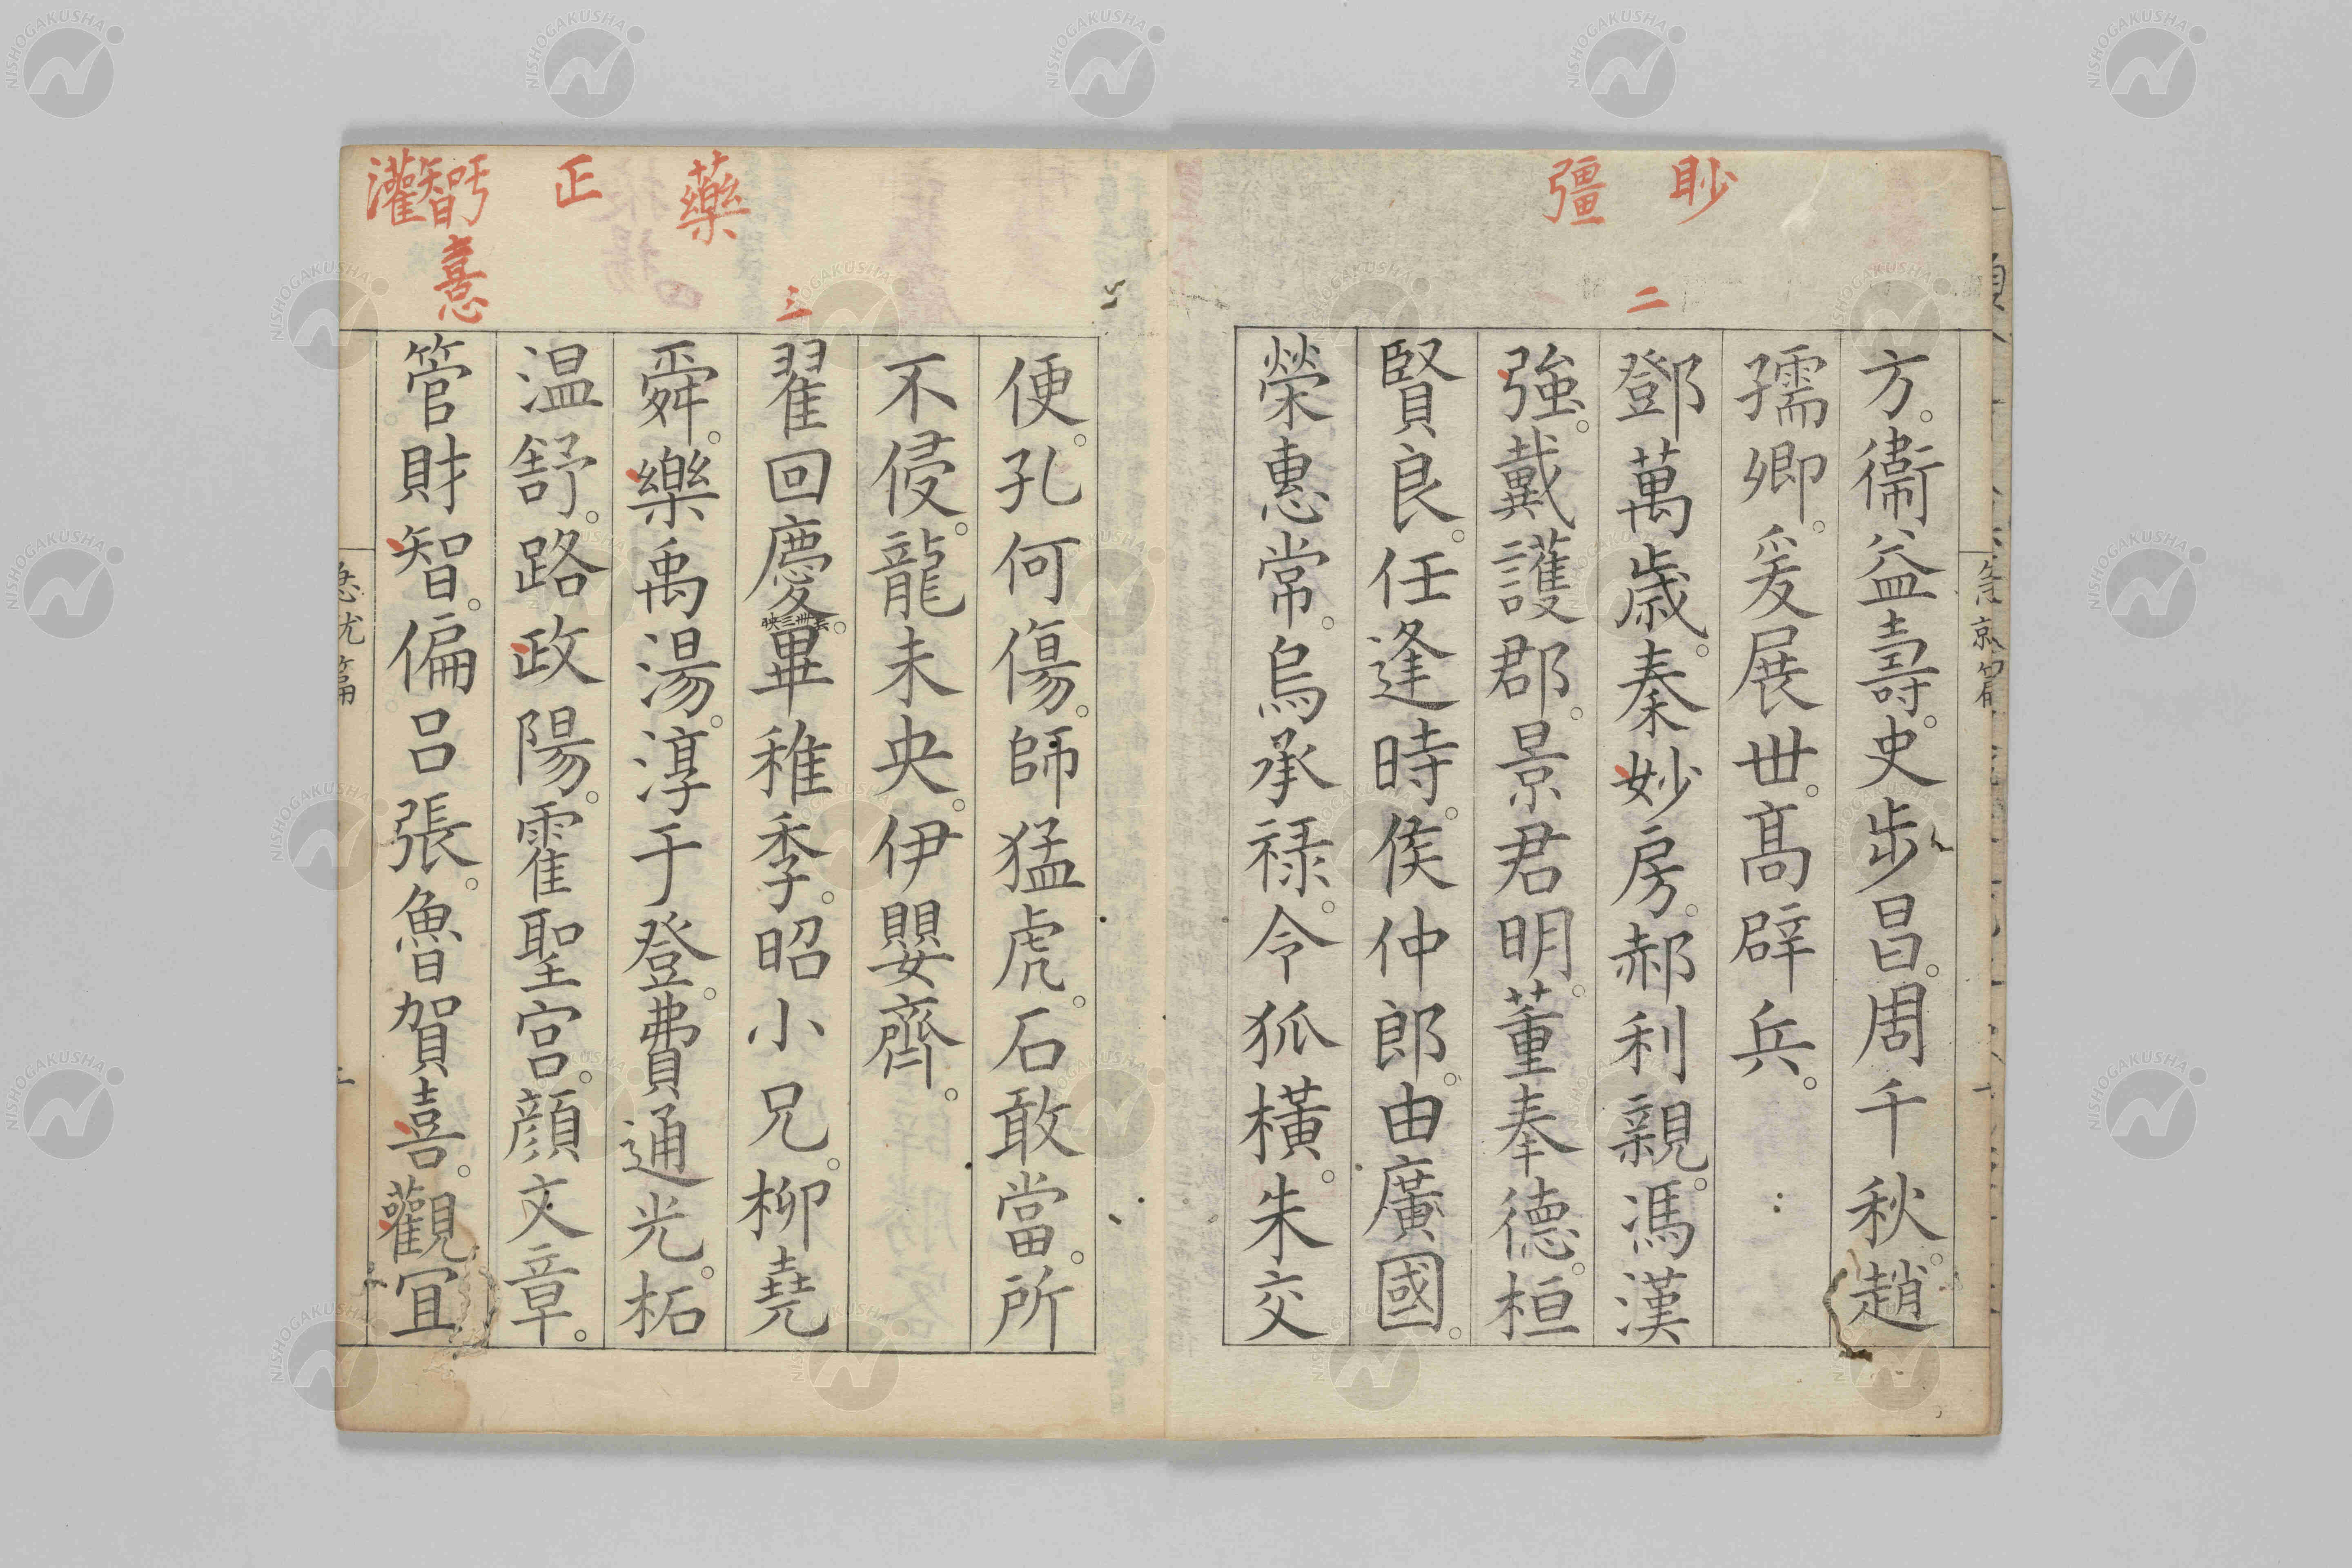 眇
彊
二
方。衞益壽。史步昌。周千秋。趙
孺卿。爰展世。髙辟兵。
鄧萬歳。秦妙房。郝利親。馮漢
強。戴護郡。景君明。董奉德。桓
賢良。任逢時。侯仲郎。由廣國。
榮惠常。烏承禄。令狐橫。朱交
急就篇
藥
正
三
便。孔何傷。師猛虎。石敢當。所
不侵。龍未央。伊嬰齊。
翟回慶。畢稚季。昭小兄。柳堯
舜。樂禹湯。淳于登。費通光。柘
温舒。路政陽。霍聖宮。顔文章。
管財智。偏呂張。魯賀喜。觀宜
灌
憙
急就篇
NISHOGAKUSHA